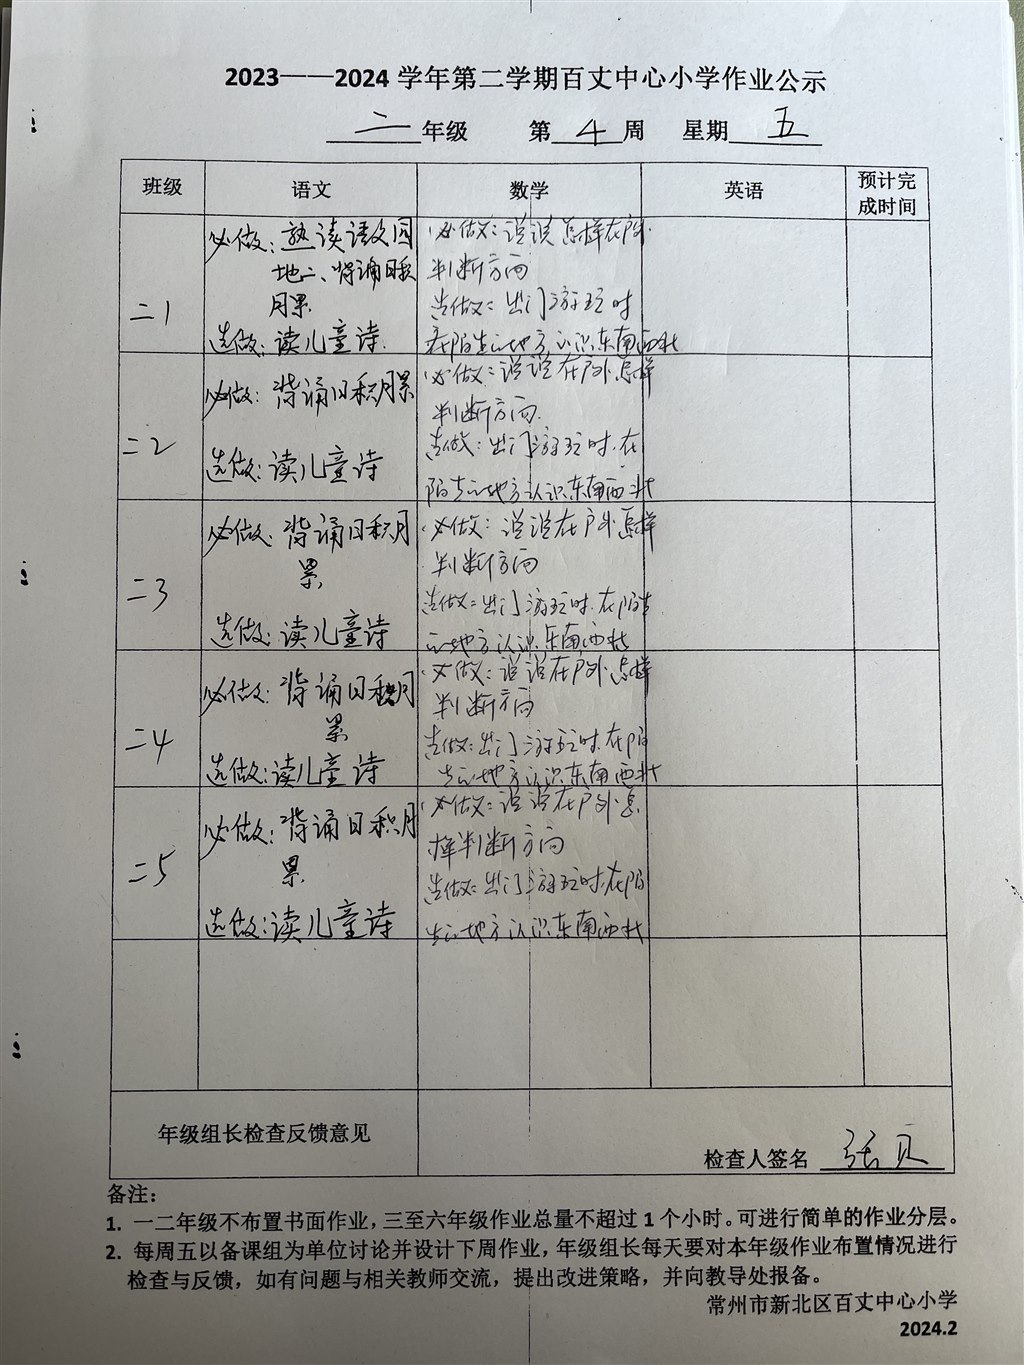 2023——2024 学年第二学期百丈中心小学作业公示
二年级 第 4 周 星期 五
班级 语文 数学 英语 预计完成时间
二1
必做：熟读语文园
地二、背诵日积
月累
选做：读儿童诗.
必做：说说怎样在户外
判断方向
选做：出门游玩时
在陌生的地方认识东南西北
二2
必做：背诵日积月累
选做：读儿童诗
必做：说说在户外怎样
判断方向.
选做：出门游玩时.在
陌生的地方认识东南西北
二3
必做：背诵日积月
累
选做：读儿童诗
必做：说说在户外怎样
判断方向
选做：出门游玩时.在陌生
的地方认识东南西北
二4
必做：背诵日积月
累
选做：读儿童诗
必做：说说在户外怎样
判断方向
选做：出门游玩时.在陌
生的地方认识东南西北
二5
必做：背诵日积月
累
选做：读儿童诗
必做：说说在户外怎
样判断方向
选做：出门游玩时.在陌
生的地方认识东南西北
年级组长检查反馈意见
检查人签名 张贝
备注：
1. 一二年级不布置书面作业，三至六年级作业总量不超过 1 个小时。可进行简单的作业分层。
2. 每周五以备课组为单位讨论并设计下周作业，年级组长每天要对本年级作业布置情况进行
检查与反馈，如有问题与相关教师交流，提出改进策略，并向教导处报备。
常州市新北区百丈中心小学
2024.2